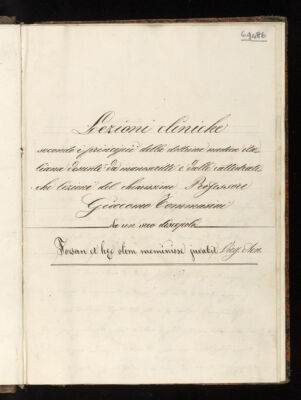 69486
Lezioni cliniche
secondo i principii della dottrina medica ita
liana desunte dai manoscritti e dalle cattedrati
che lezioni del chiarissimo Professore
Giacomo Tommasini
da un suo discepolo
Forsan et hęc olim meminisse juvabit Virg. Aen.